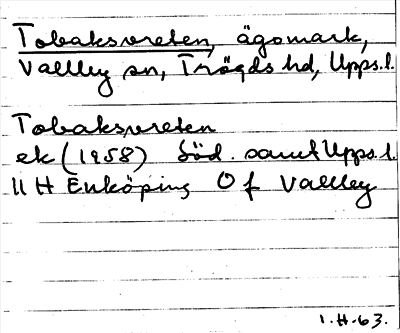 Tobaksvreten, ägomark,
Vallby sn, Trögds hd, Upps.l.
Tobaksvreten
ek (1958) Söd. samt Upps.l.
11 H Enköping O f Vallby
1.H.63.